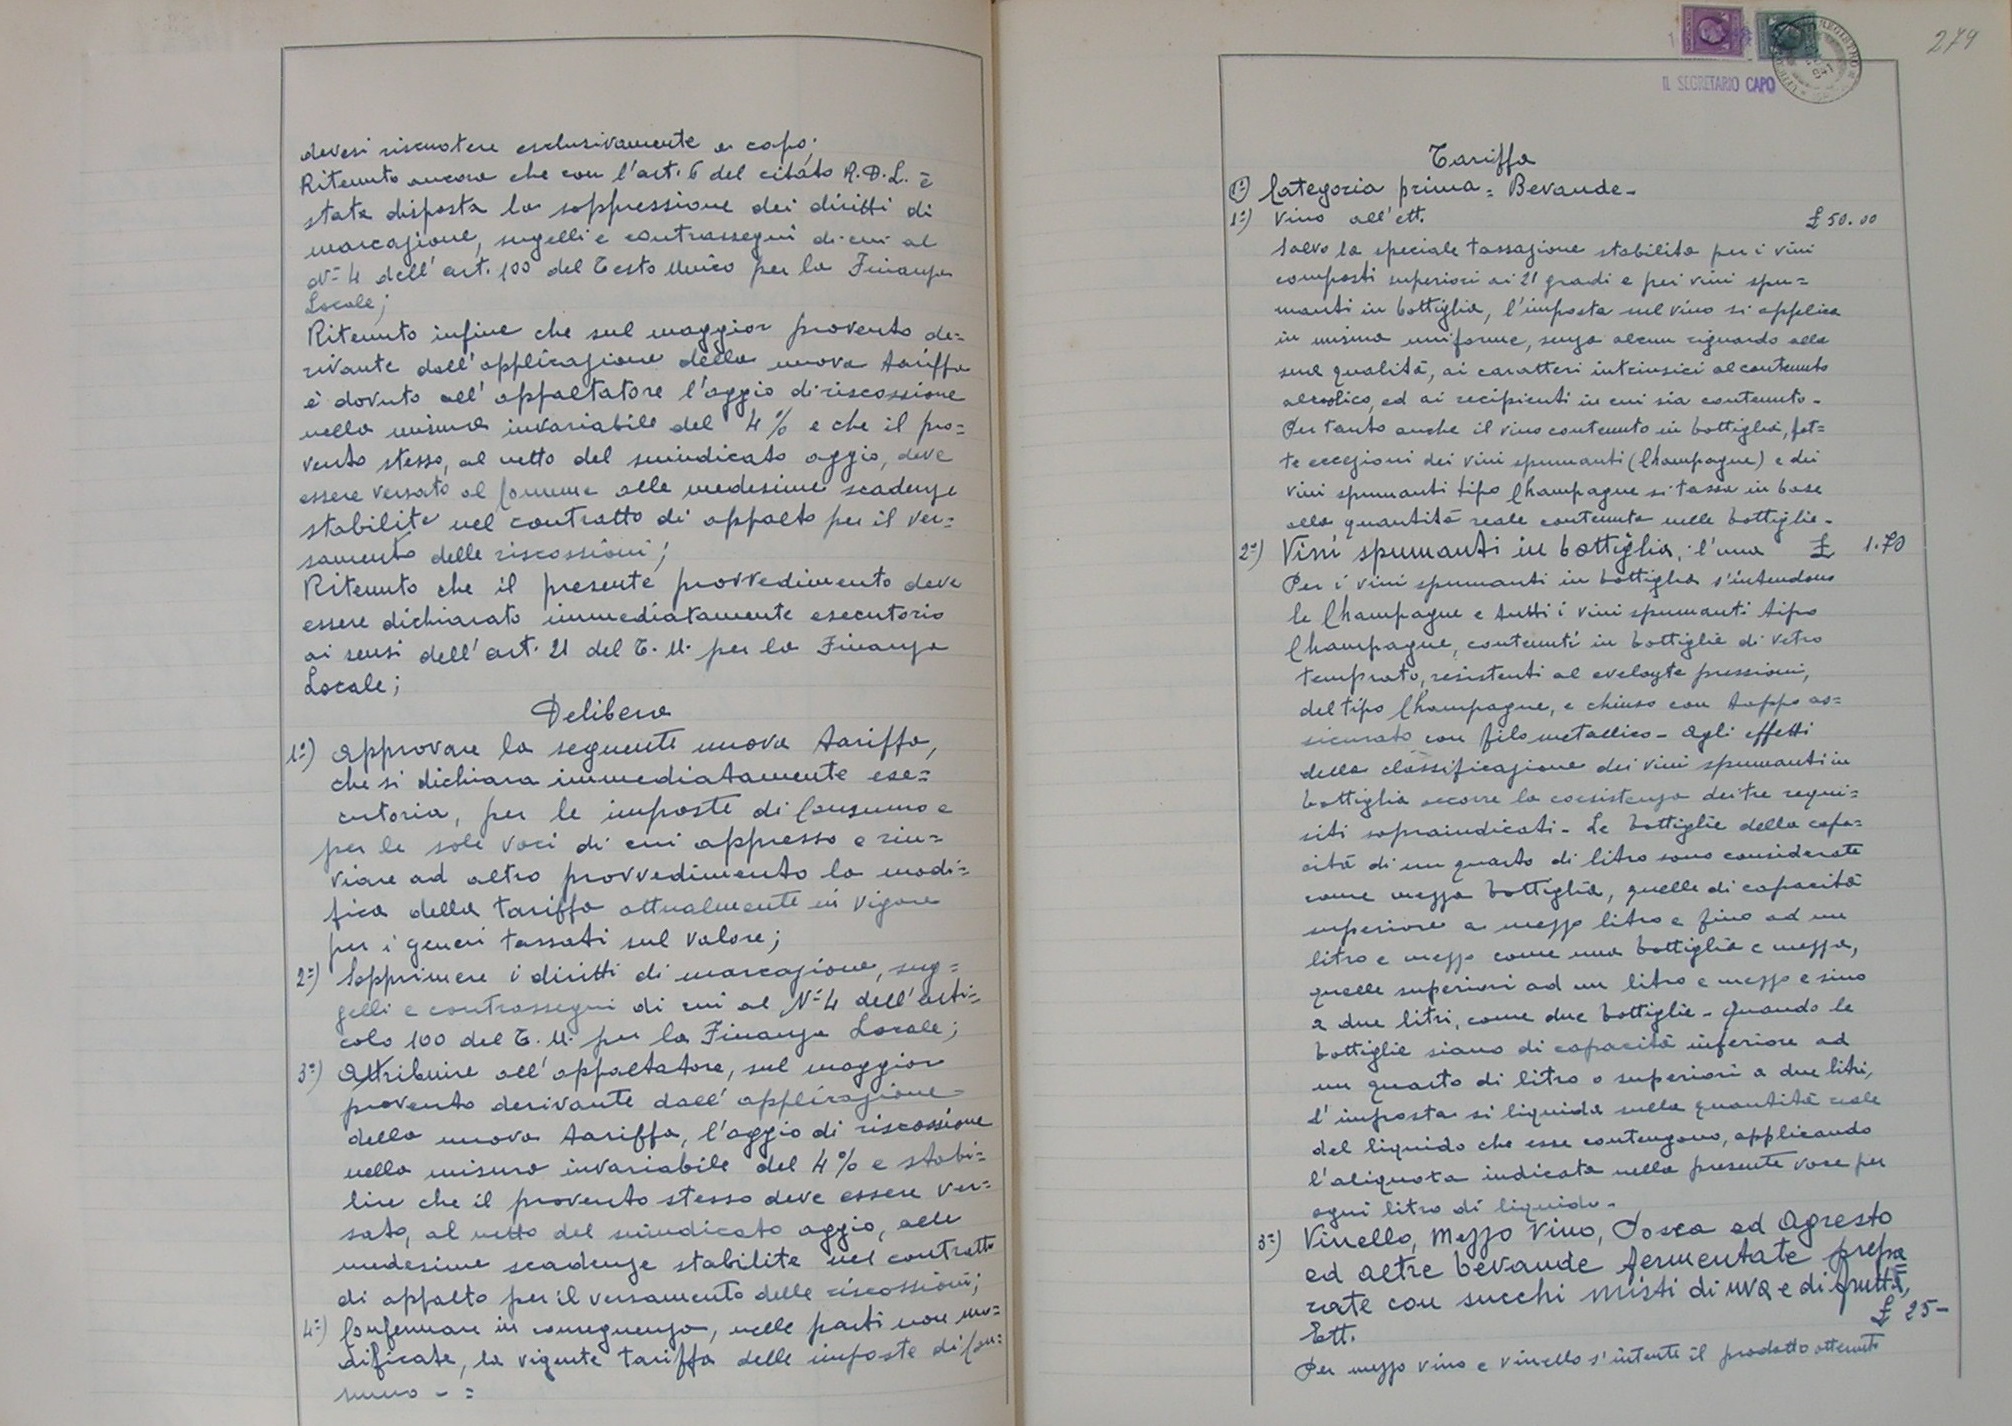 devesi riscuotere esclusivamente a capo;
Ritenuto ancora che con l'art. 6 del citato R.D.L. è
stata disposta la soppressione dei diritti di
marcazione, sugelli e contrassegni di cui al
N° 4 dell'art. 100 del Testo Unico per la Finanza
Locale;
Ritenuto infine che sul maggior provento de=
rivante dall'applicazione della nuova tariffa
è dovuto all'appaltatore l'aggio di riscossione
nella misura invariabile del 4% e che il pro=
vento stesso, al netto del suindicato aggio, deve
essere versato al Comune alle medesime scadenze
stabilite nel contratto di appalto per il ver=
samento delle riscossioni;
Ritenuto che il presente provvedimento deve
essere dichiarato immediatamente esecutorio
ai sensi dell'art. 21 del T.U. per la Finanza
Locale;
Delibera
1°) Approvare la seguente nuova tariffa,
che si dichiara immediatamente ese=
cutoria, per le imposte di Consumo e
per le sole voci di cui appresso e rin=
viare ad altro provvedimento la modi=
fica della tariffa attualmente in vigore
per i generi tassati sul valore;
2°) Sopprimere i diritti di marcazione, sug=
gelli e contrassegni di cui al N° 4 dell'arti=
colo 100 del T.U. per la Finanza Locale;
3°) Attribuire all'appaltatore, sul maggior
provento derivante dall'applicazione
della nuova tariffa, l'aggio di riscossione
nella misura invariabile del 4% e stabi=
lire che il provento stesso deve essere ver=
sato, al netto del suindicato aggio, alle
medesime scadenze stabilite nel contratto
di appalto per il versamento delle riscossioni;
4°) Confermare in conseguenza, nelle parti non mo=
dificate, la vigente tariffa delle imposte di Con=
sumo - =
279
IL SEGRETARIO CAPO
Tariffa
1°) Categoria prima = Bevande -
1°) Vino all'ett. £ 50.00
Salvo la speciale tassazione stabilita per i vini
composti superiori ai 21 gradi e pei vini spu=
manti in bottiglia, l'imposta sul vino si applica
in misura uniforme, senza alcun riguardo alla
sua qualità, ai caratteri intrinsici al contenuto
alcoolico, ed ai recipienti in cui sia contenuto -
Per tanto anche il vino contenuto in bottiglia, fat=
te eccezioni dei vini spumanti (Champagne) e dei
vini spumanti tipo Champagne si tassa in base
alla quantità reale contenuta nelle bottiglie -
2°) Vini spumanti in bottiglia, l'una £ 1.70
Per i vini spumanti in bottiglia s'intendono
le Champagne e tutti i vini spumanti tipo
Champagne, contenuti in bottiglie di vetro
temprato, resistenti ad pressioni,
del tipo Champagne, e chiuso con tappo as=
sicurato con filo metallico - Agli effetti
della classificazione dei vini spumanti in
bottiglia occorre la coesistenza dei tre requi=
siti sopraindicati - Le bottiglie della capa=
cità di un quarto di litro sono considerate
come mezza bottiglia, quelle di capacità
superiore a mezzo litro e fino ad un
litro e mezzo come una bottiglia e mezza,
quelle superiori ad un litro e mezzo e sino
a due litri, come due bottiglie - Quando le
bottiglie siano di capacità inferiore ad
un quarto di litro o superiori a due litri,
l'imposta si liquida sulla quantità reale
del liquido che esse contengono, applicando
l'aliquota indicata nella presente voce per
ogni litro di liquido -
3°) Vinello, Mezzo Vino, Posca ed Agresto
ed altre bevande fermentate prepa=
rate con succhi misti di uva e di frutta,
Ett. £ 25-
Per mezzo vino e vinello s'intente il prodotto ottenuto